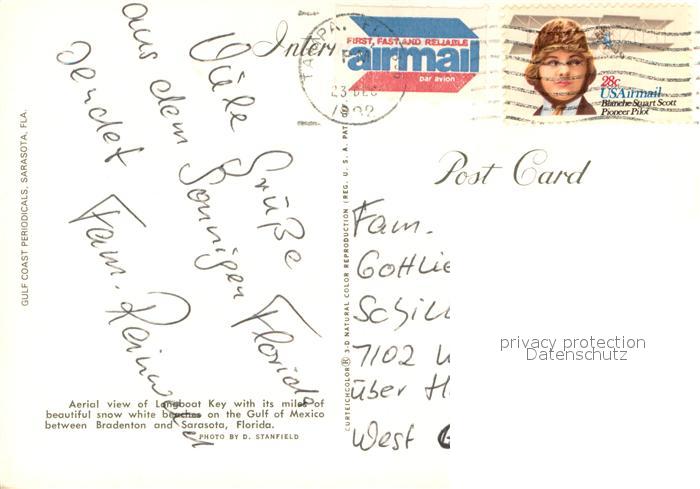 Viele Grüße
aus dem Sonnigen Florida
sendet Fam.
GULF COAST PERIODICALS, SARASOTA, FLA.
Aerial view of Longboat Key with its miles of
beautiful snow white beaches on the Gulf of Mexico
between Bradenton and Sarasota, Florida.
PHOTO BY D. STANFIELD
CURTEICHCOLOR® 3-D NATURAL COLOR REPRODUCTION (REG. U.S.A. PAT.
TAMPA,
23 DEC
FIRST, FAST AND RELIABLE
airmail
par avion
28c
USAirmail
Blanche Stuart Scott
Pioneer Pilot
Post Card
Fam.
Gottlie
Schill
7102 W
über H
West G
privacy protection
Datenschutz